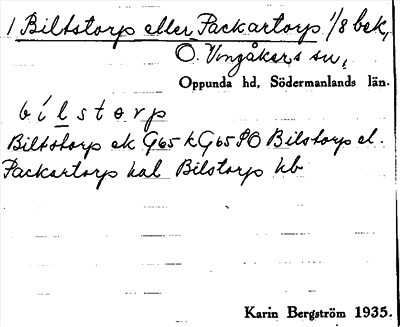 1 Biltstorp eller Packartorp 1/8 bek,
Ö. Vingåkers sn,
Oppunda hd, Södermanlands län.
bi´lstorp
Biltstorp ek G65 k G65 PO Bilstorp el.
Packartorp kal Bilstorp hb
Karin Bergström 1935.